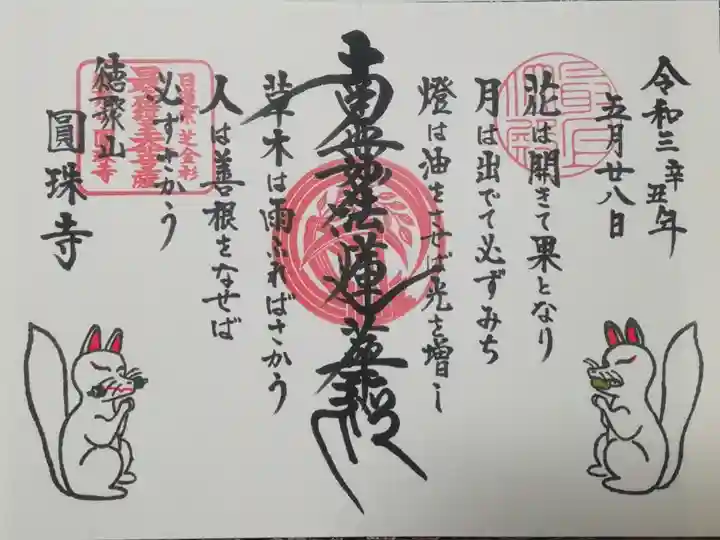 令和三辛丑年
五月廿八日
花は開きて果となり
月は出でて必ずみち
燈は油をさせば光を増し
南無妙法蓮華経
草木は雨ふればさかう
人は善根をなせば
必ずさかう
徳聚山
圓珠寺